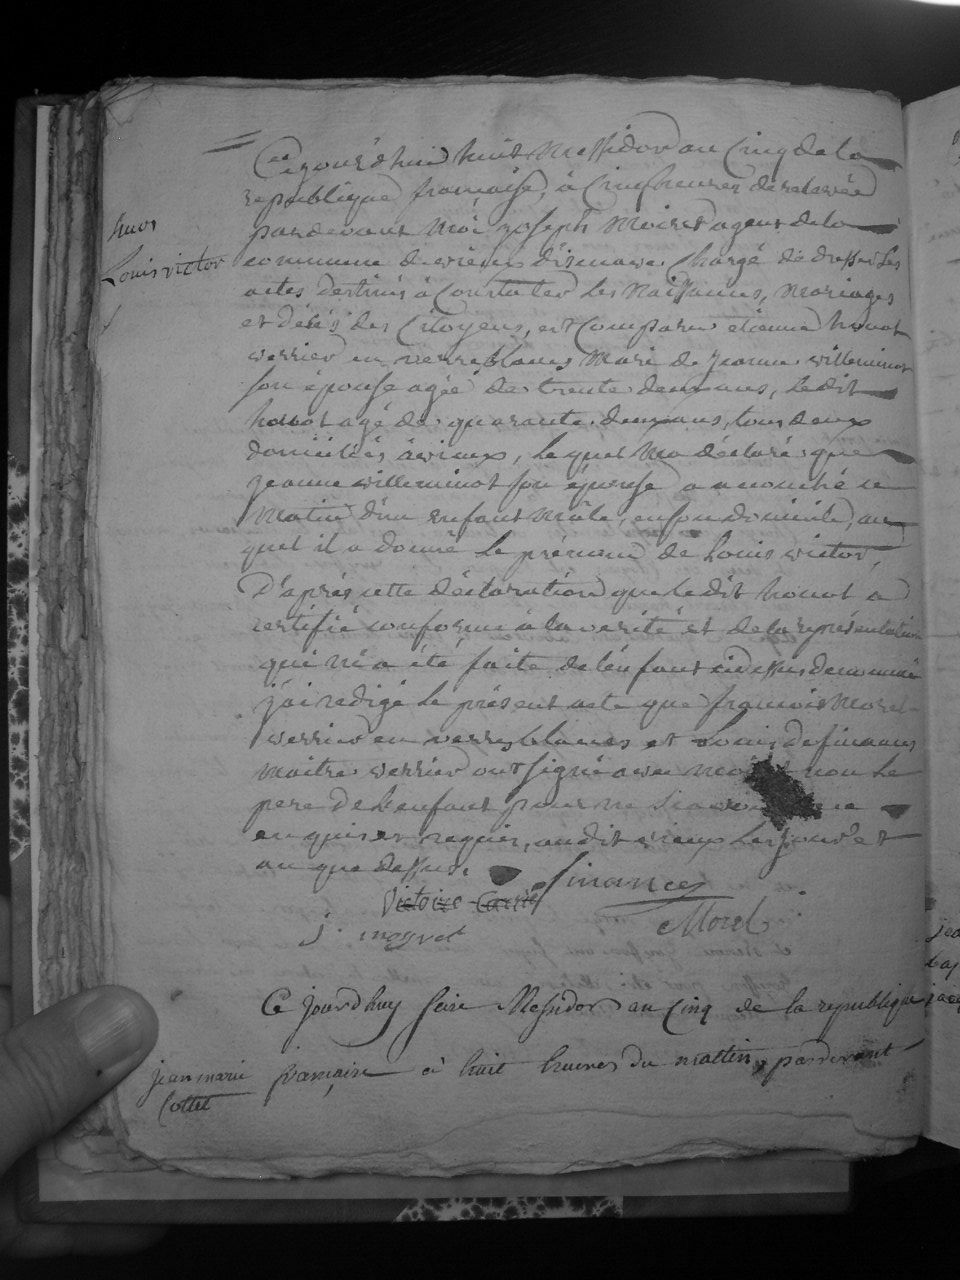 Ce jourd'hui huit Messidor an Cinq de la
republique française, à Cinq heures de relevée
huot
pardevant Moi joseph Moiret agent de la
Louis victor
commune de Chargé de dresser les
actes destinés à Constater les Naissances, Mariages
et décés des Citoyens, est Comparu etienne houot
verrier en verres blancs Mari de jeanne willeminot
son épouse agée de trente deux ans, ledit
houot agé de quarante deux ans, tous deux
domiciliés à vieux, lequel M'a déclaré que
jeanne willeminot son épouse a accouché ce
Matin d'un enfant Mâle, en son domicile, au
quel il a donné le prénom de Louis victor,
D'après cette déclaration que ledit houot a
certifié conforme à la verité et de la représentation
qui m'a été faite de l'enfant cidessus denommé
j'ai redigé le présent acte que françois Morel
verrier en verres blancs et Louis de finances
Maitre verrier ont signé avec non le
pere de l'enfant pour ne
en quis et requis, audit vieux les jour et
an que dessus.
finances
Victoire
j. Morel
Ce jourd'huy seize Messidor an Cinq de la republique
jean marie française à huit heures du mattin, pardevant
Cottet